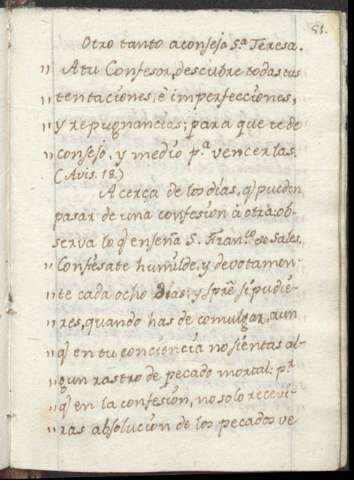 51.
Otro tanto aconsejo S.ª Teresa.
" A tu Confesor, descubre todas tus
" tentaciones, è imperfecciones,
" y repugnancias; para que te de
" consejo, y medio p.ª vencerlas.
(Avis. 18.)
Acerca de los días, q̃ pueden
pasar de una confesion à otra: ob-
serva lo q̃ enseña S. Fran.co de Sales.
" Confesate humilde, y devotamen-
" te cada ocho Dias; y spr̃e si pudie-
" res, quando has de comulgar, aun
" q̃ en tu conciencia no sientas al-
" gun rastro de pecado mortal: p.r
" q̃ en la confesion, no solo recevi-
" ras absolucion de los pecados ve